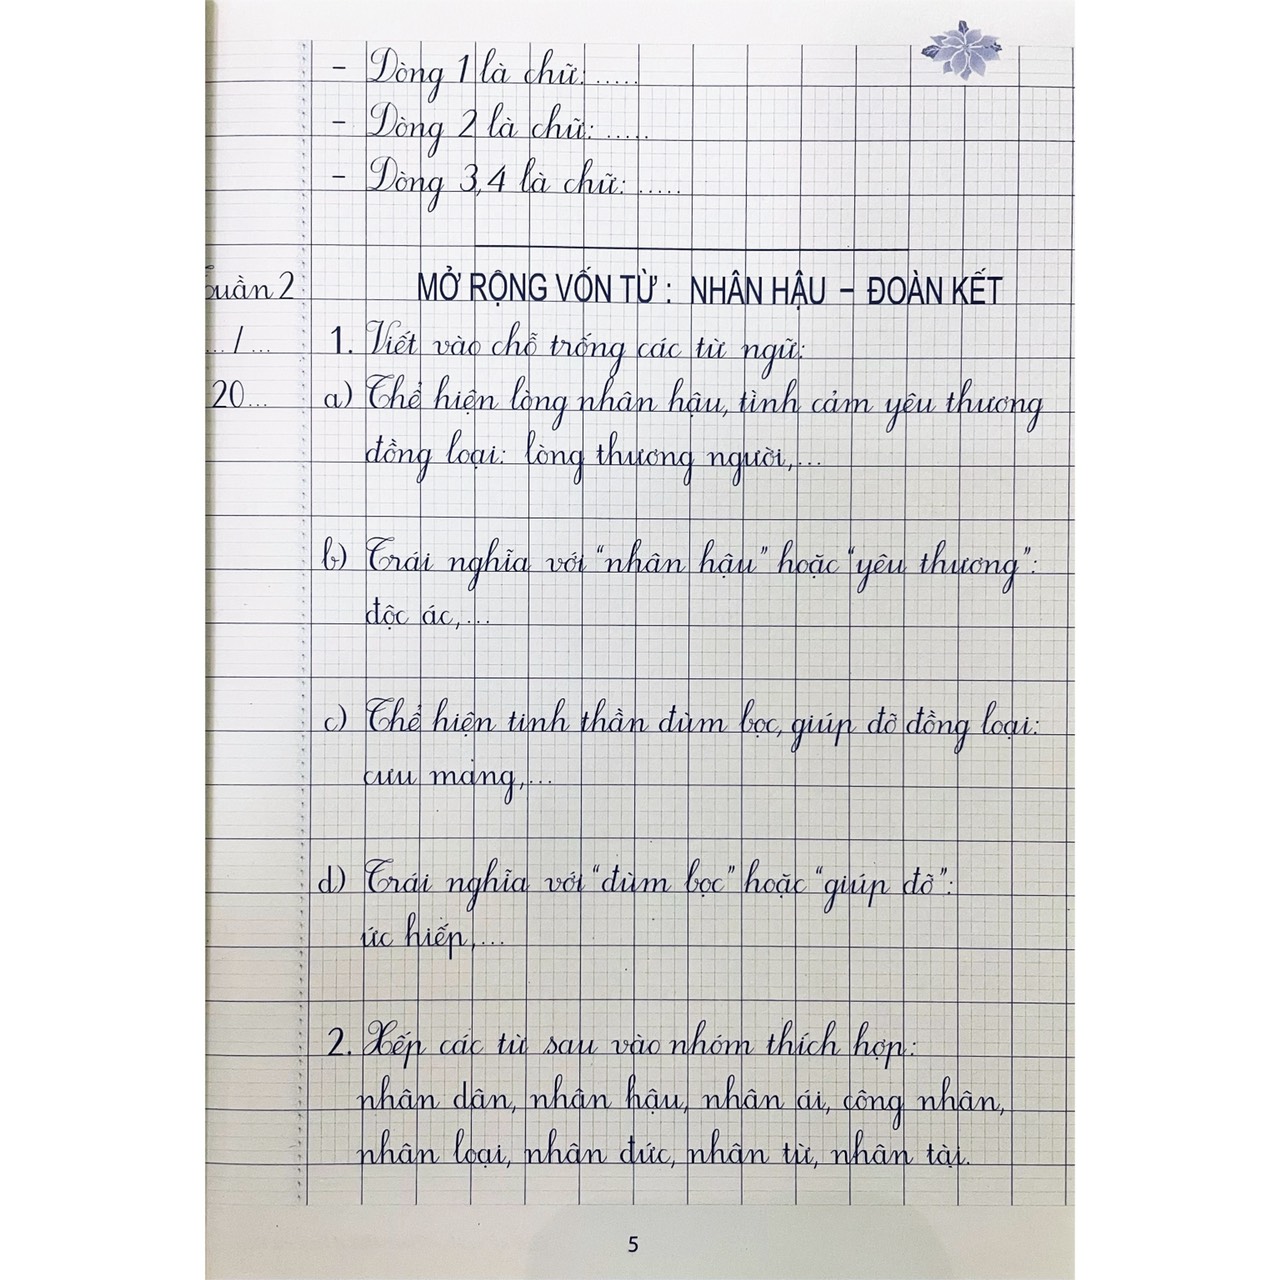 - Dòng 1 là chữ: .....
- Dòng 2 là chữ: .....
- Dòng 3,4 là chữ: .....
Tuần 2
MỞ RỘNG VỐN TỪ : NHÂN HẬU – ĐOÀN KẾT
... / ...
1. Viết vào chỗ trống các từ ngữ:
20...
a) Thể hiện lòng nhân hậu, tình cảm yêu thương
đồng loại: lòng thương người,...
b) Trái nghĩa với "nhân hậu" hoặc "yêu thương":
độc ác,...
c) Thể hiện tinh thần đùm bọc, giúp đỡ đồng loại:
cưu mang,...
d) Trái nghĩa với "đùm bọc" hoặc "giúp đỡ":
ức hiếp,...
2. Xếp các từ sau vào nhóm thích hợp:
nhân dân, nhân hậu, nhân ái, công nhân,
nhân loại, nhân đức, nhân từ, nhân tài.
5